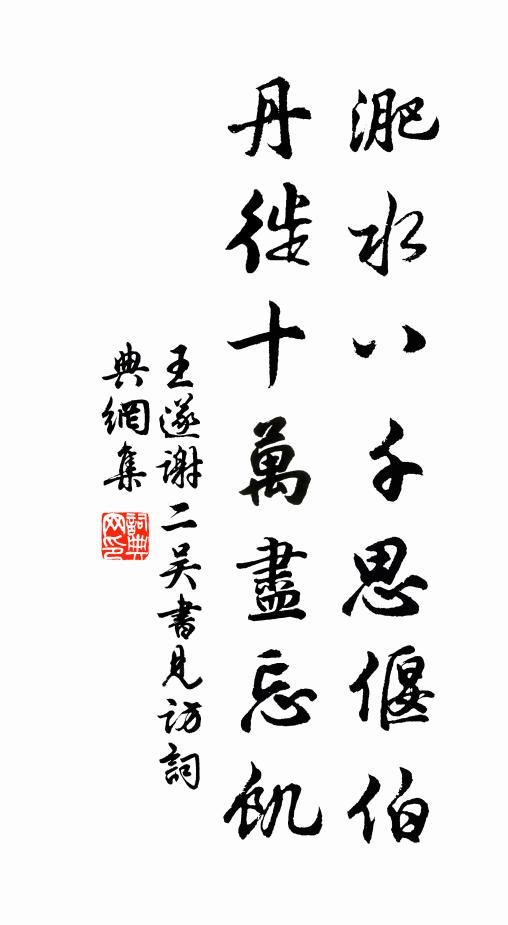 淝水八千思偃伯
丹徙十萬盡忘飢
王遂謝二吴書見訪詞
典網集
詞典網印